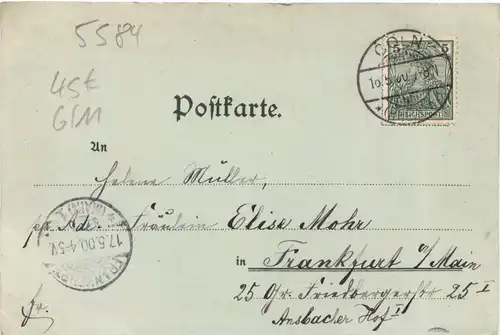 5584
45€
G/11
CÖLN
5
16.5.00. 7-8N
REICHSPOST
Postkarte.
An
Helene Müller,
pr. Adr. Fräulein Elise Mohr
in Frankfurt a/Main
25 Gr. Friedbergerstr 25 I
Ansbacher Hof I
17.5.00.4-5V.
fr.